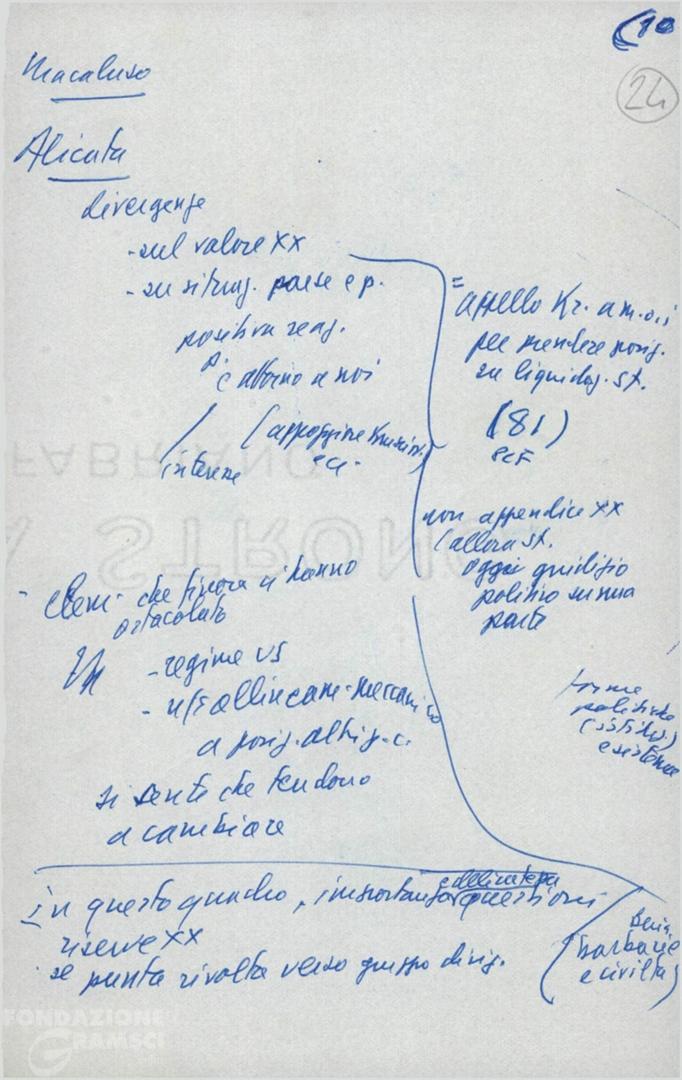 10
24
Macaluso
Alicata
divergenze
- sul valore XX
- su situaz. paese e p.
positiva reaz.
attorno a noi
interne
(appoggiare
= appello
per prendere posiz.
su liquidaz. st.
(81)
PCF
non appendice XX
(allora st.
oggi giudizio
politico su una
parte
- elem. che finora ci hanno
ostacolato
- regime US
- allineam. meccanico
a posiz. altrip.c.
si sente che tendono
a cambiare
forme
politiche
(istituz.)
e sistema
In questo quadro, importanza questioni
e delicatezza
riserve XX
se punta rivolta verso gruppo dirig.
barbarie
e civiltà)
FABRIANO
STRONG
FONDAZIONE
GRAMSCI